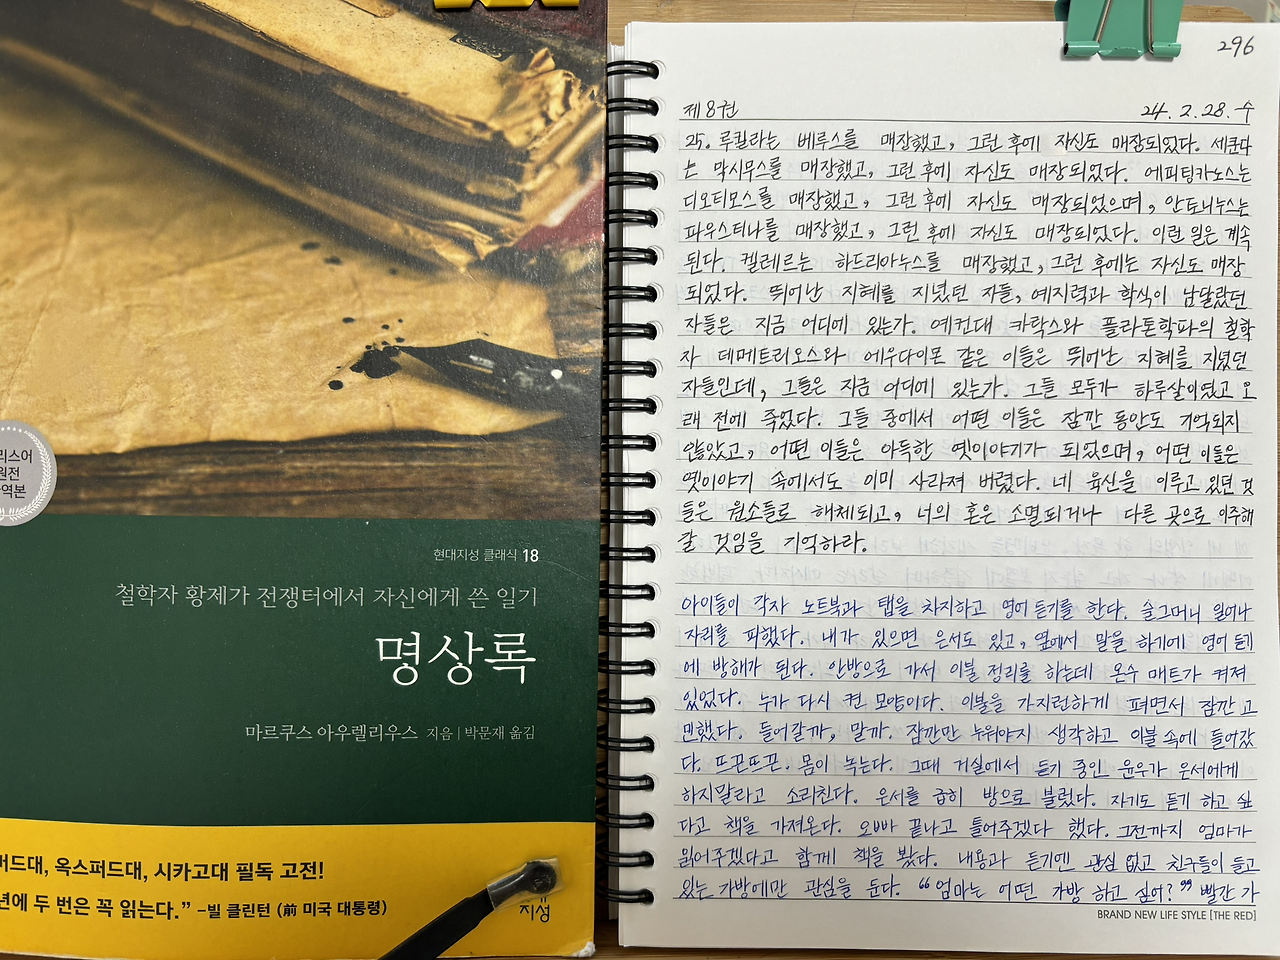 리스어
원전
역본
현대지성 클래식 18
철학자 황제가 전쟁터에서 자신에게 쓴 일기
명상록
마르쿠스 아우렐리우스 지음 | 박문재 옮김
버드대, 옥스퍼드대, 시카고대 필독 고전!
년에 두 번은 꼭 읽는다.” –빌 클린턴 (前 미국 대통령)
지성
296
제8권 24. 2. 28. 수
25. 루킬라는 베루스를 매장했고, 그런 후에 자신도 매장되었다. 세쿤다
는 막시무스를 매장했고, 그런 후에 자신도 매장되었다. 에피팅카노스는
디오티모스를 매장했고, 그런 후에 자신도 매장되었으며, 안토니누스는
파우스티나를 매장했고, 그런 후에 자신도 매장되었다. 이런 일은 계속
된다. 켈레르는 하드리아누스를 매장했고, 그런 후에는 자신도 매장
되었다. 뛰어난 지혜를 지녔던 자들, 예지력과 학식이 남달랐던
자들은 지금 어디에 있는가. 예컨대 카락스와 플라톤학파의 철학
자 데메트리오스와 에우다이몬 같은 이들은 뛰어난 지혜를 지녔던
자들인데, 그들은 지금 어디에 있는가. 그들 모두가 하루살이였고 오
래 전에 죽었다. 그들 중에서 어떤 이들은 잠깐 동안도 기억되지
않았고, 어떤 이들은 아득한 옛이야기가 되었으며, 어떤 이들은
옛이야기 속에서도 이미 사라져 버렸다. 네 육신을 이루고 있던 것
들은 원소들로 해체되고, 너의 혼은 소멸되거나 다른 곳으로 이주해
갈 것임을 기억하라.
아이들이 각자 노트북과 탭을 차지하고 영어 듣기를 한다. 슬그머니 일어나
자리를 피했다. 내가 있으면 은서도 있고, 옆에서 말을 하기에 영어 듣기
에 방해가 된다. 안방으로 가서 이불 정리를 하는데 온수 매트가 켜져
있었다. 누가 다시 켠 모양이다. 이불을 가지런하게 펴면서 잠깐 고
민했다. 들어갈까, 말까. 잠깐만 누워야지 생각하고 이불 속에 들어갔
다. 뜨끈뜨끈. 몸이 녹는다. 그때 거실에서 듣기 중인 윤우가 은서에게
하지말라고 소리친다. 은서를 급히 방으로 불렀다. 자기도 듣기 하고 싶
다고 책을 가져온다. 오빠 끝나고 틀어주겠다 했다. 그전까지 엄마가
읽어주겠다고 함께 책을 봤다. 내용과 듣기엔 관심 없고 친구들이 들고
있는 가방에만 관심을 둔다. “엄마는 어떤 가방 하고 싶어?” 빨간 가
BRAND NEW LIFE STYLE [THE RED]